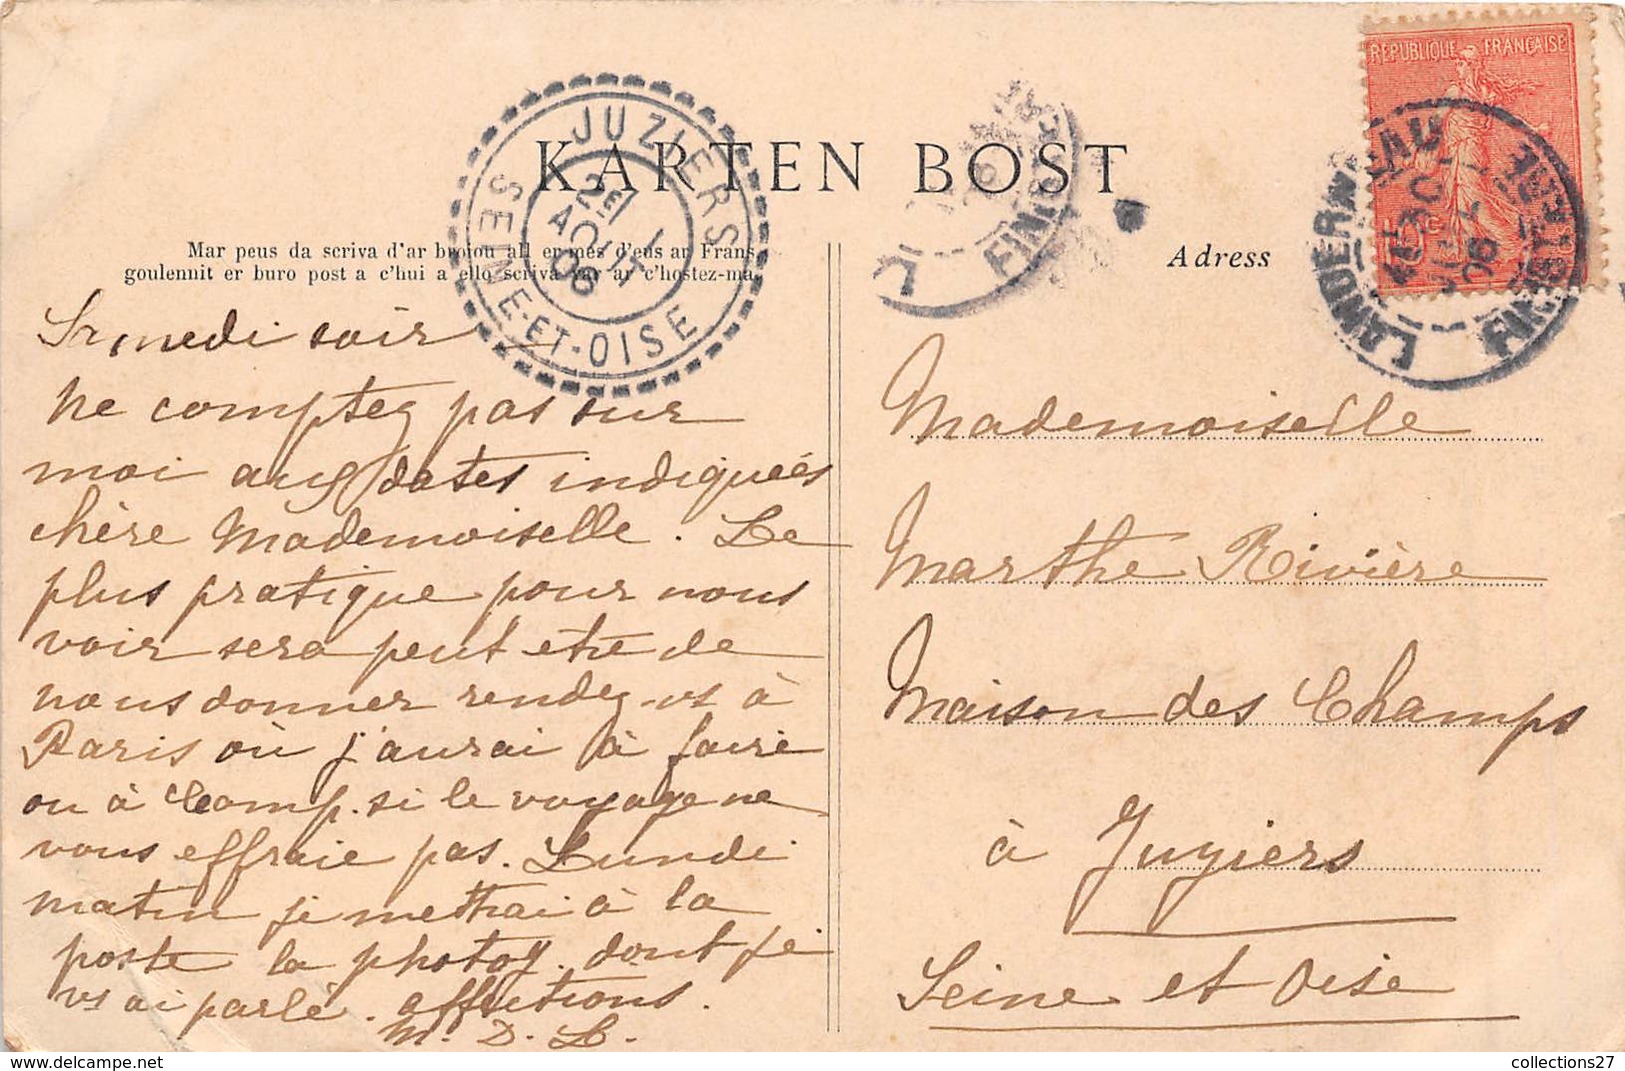 KARTEN BOST
Mar peus da scriva d'ar broiou all er mes d'eus ar Frans,
goulennit er buro post a c'hui a ello scriva var ar c'hostez-ma.
Adress
JUZIERS
SEINE-ET-OISE
2E / 1
AOUT
06
LANDERNEAU
FINISTERE
30
06
FINISTERE
REPUBLIQUE FRANÇAISE
Samedi soir
Ne comptez pas sur
moi aux dates indiquées
chère Mademoiselle. Le
plus pratique pour nous
voir sera peut etre de
nous donner rendez-vs à
Paris où j'aurai à faire
ou à Comp. si le voyage ne
vous effraie pas. Lundi
matin je mettrai à la
poste la photog. dont je
vs ai parlé. affections.
M. D. L.
Mademoiselle
Marthe Rivière
Maison des Champs
à Juziers
Seine et Oise
collections27
https://www.delcampe.net